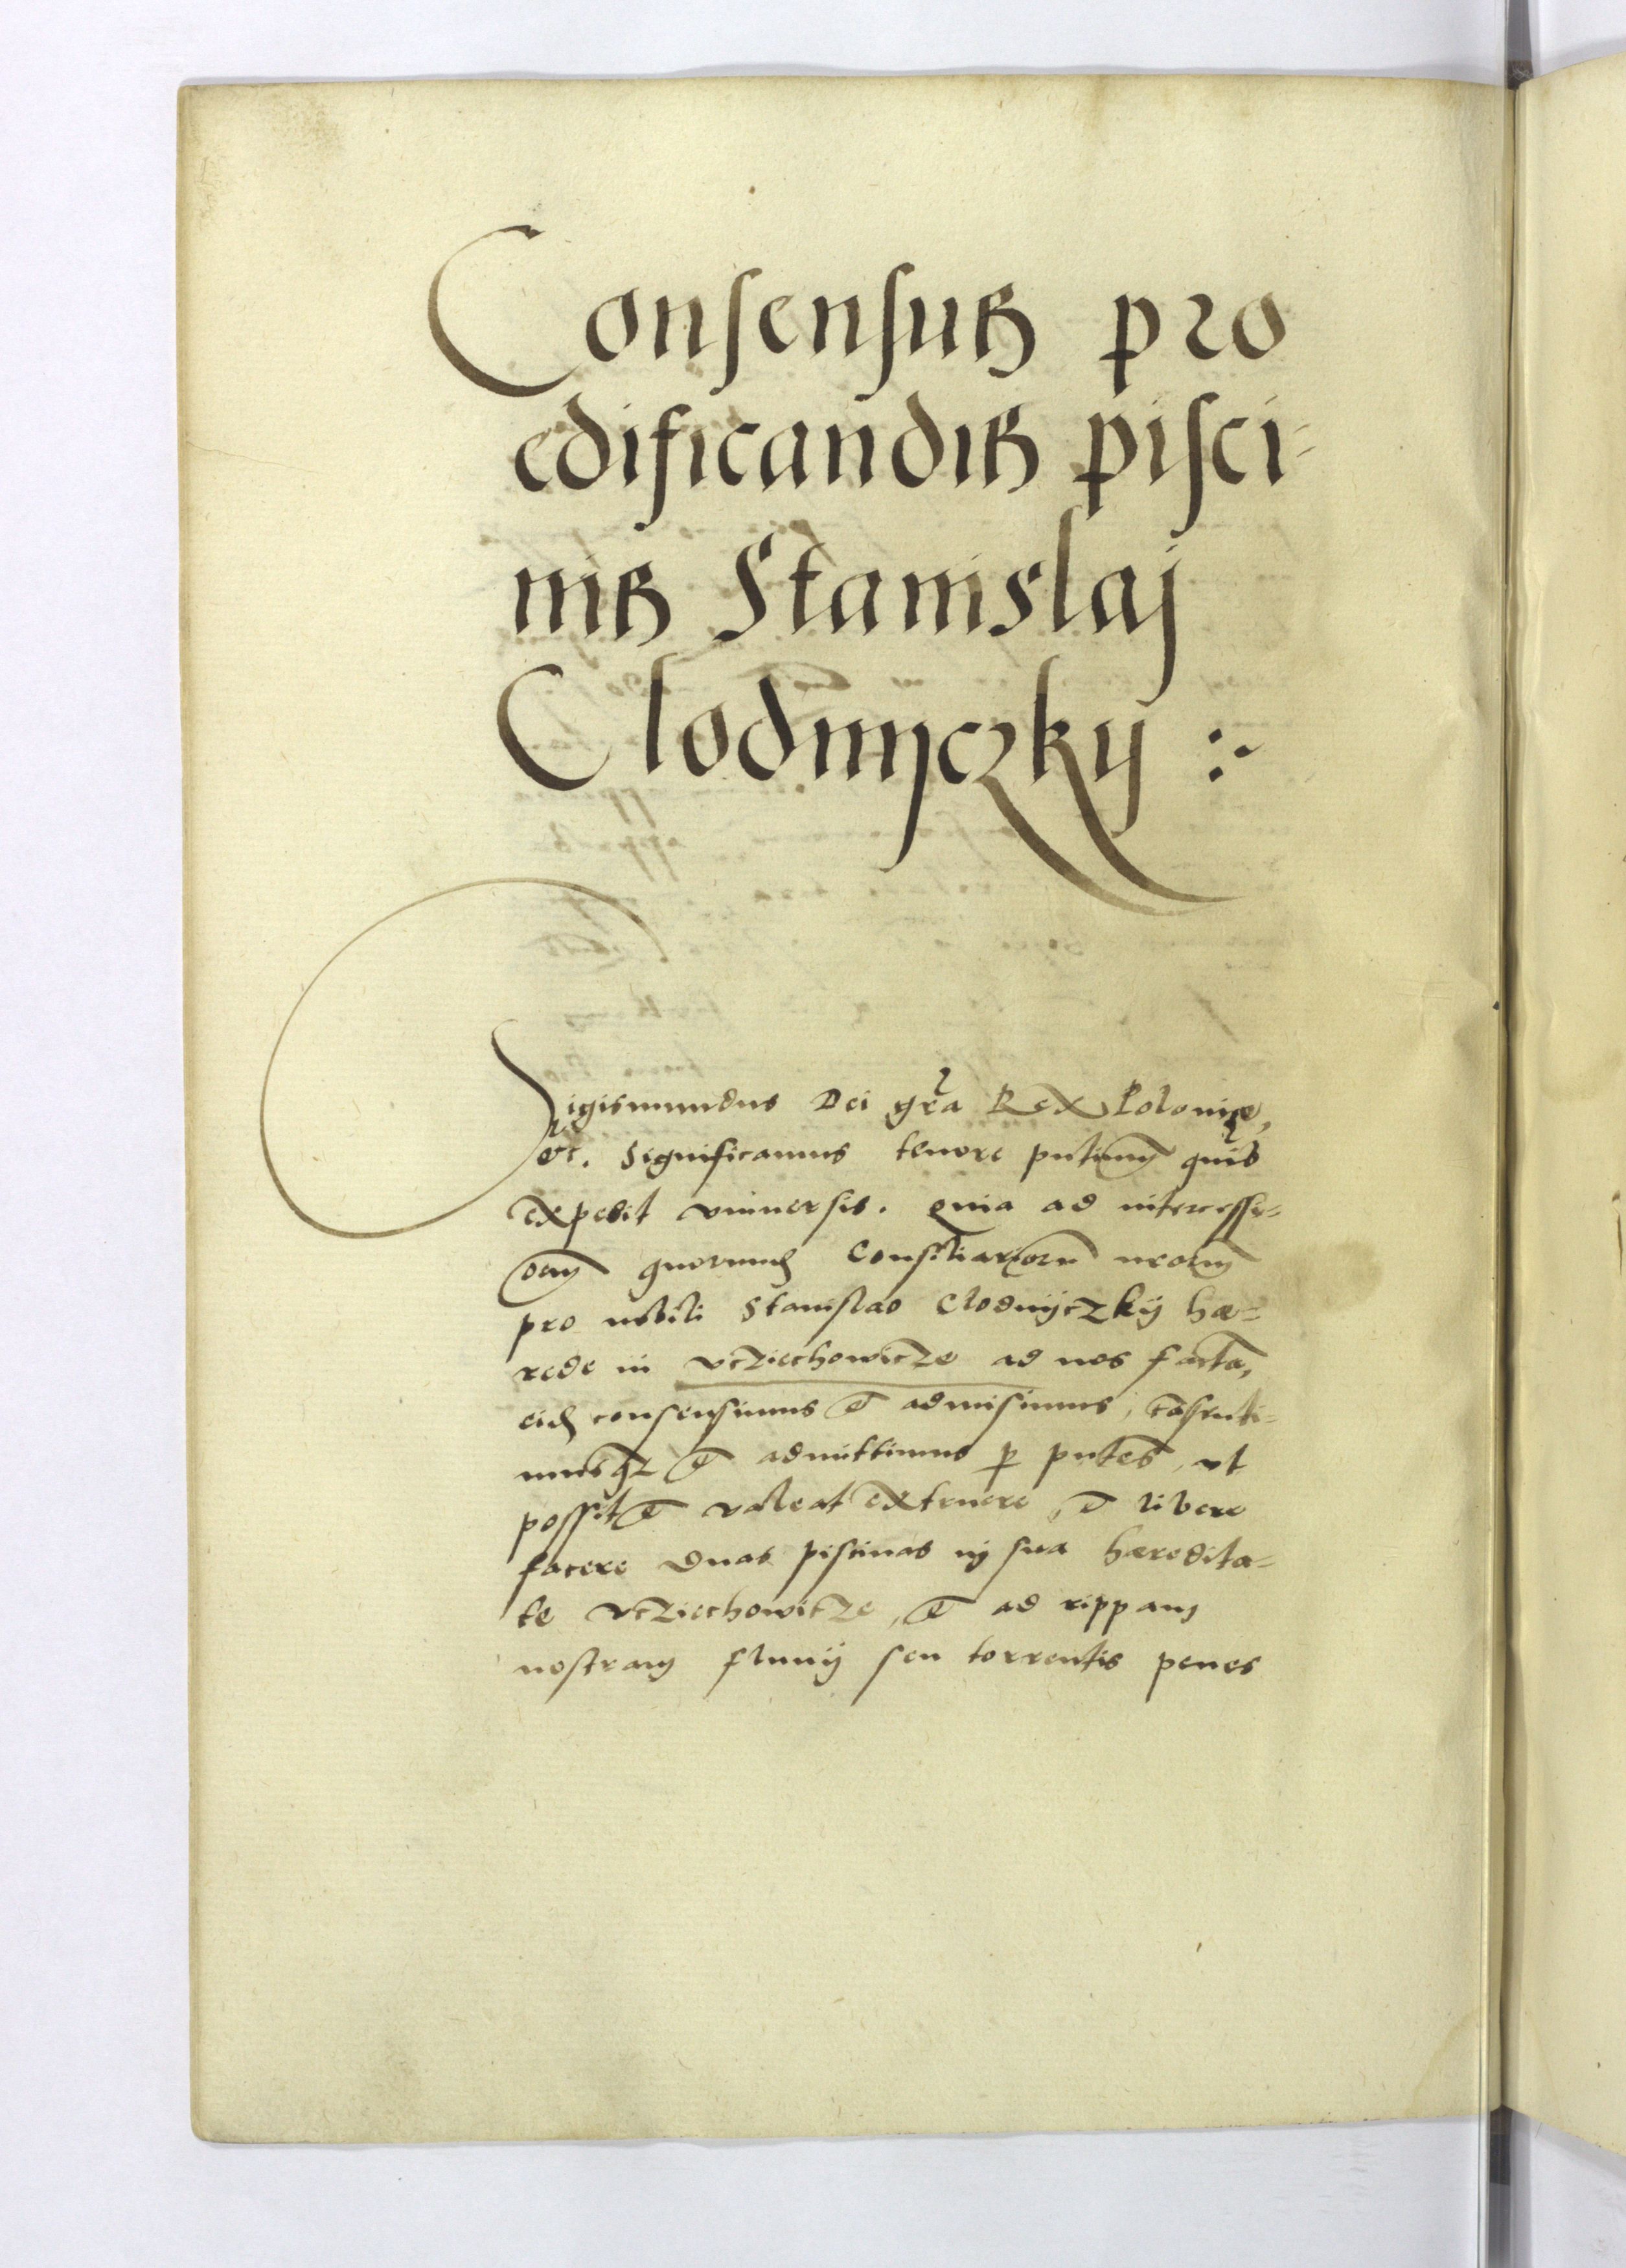 Consensus pro
edificandis pisci-
nis Stanislaj
Clodnyczky :~
Sigismundus Dei gr̃a Rex Poloniæ,
etc. Significamus tenore pñtium quib
expedit vniuersis. Quia ad intercessi-
onem quorund Consiliariorum nrorum
pro nobili Stanislao Clodnyczky hæ-
rede in vcziechowicze ad nos factã,
eid consensimus et admisimus, cõsenti-
musqz et admittimus p pñtes, vt
possit et valeat extruere, et libere
facere duas piscinas in sua hæredita-
te vcziechowicze, et ad rippam
nostram fluuij seu torrentis penes